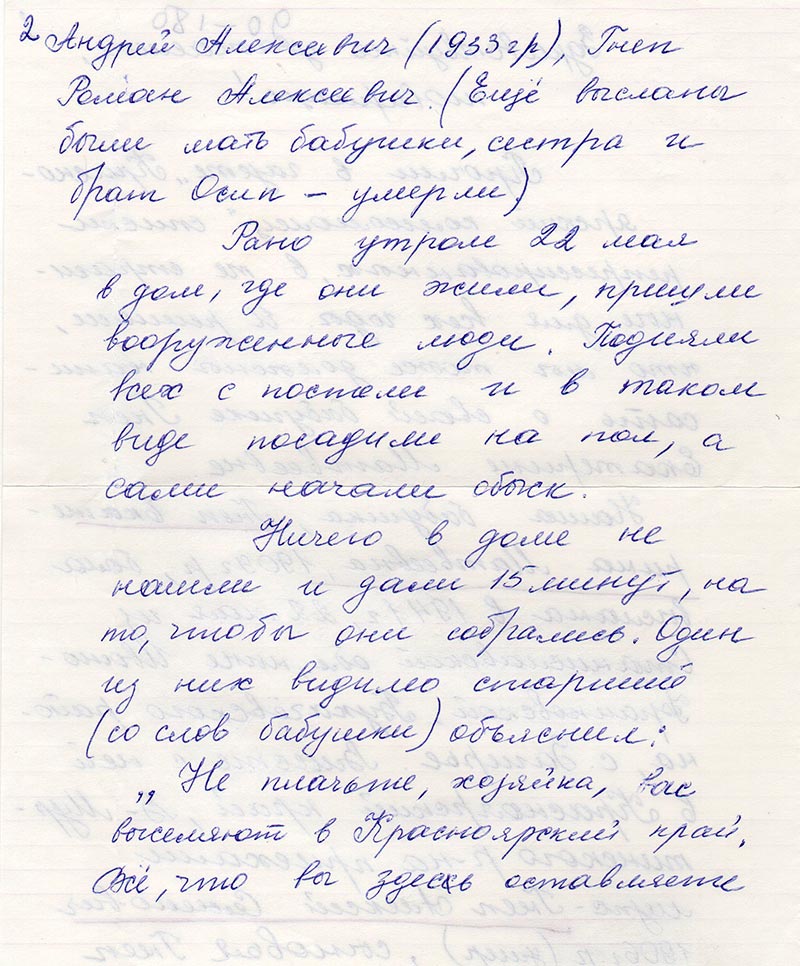 2 Андрей Алексеевич (1933гр), Гнеп
Роман Алексеевич. (Ещё высланы
были мать бабушки, сестра и
брат Осип – умерли)
Рано утром 22 мая
в дом, где они жили, пришли
вооруженные люди. Подняли
всех с постели и в таком
виде посадили на пол, а
сами начали обыск.
Ничего в доме не
нашли и дали 15 минут, на
то, чтобы они собрались. Один
из них видимо старший
(со слов бабушки) объяснил:
„Не плачьте, хозяйка, вас
выселяют в Красноярский край.
Всё, что вы здесь оставляете